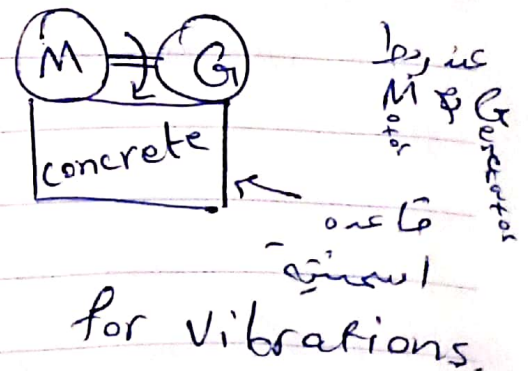 M G
concrete
عند ربط
M & G
otor enerator
قاعده
اسمنتية
for vibrations.